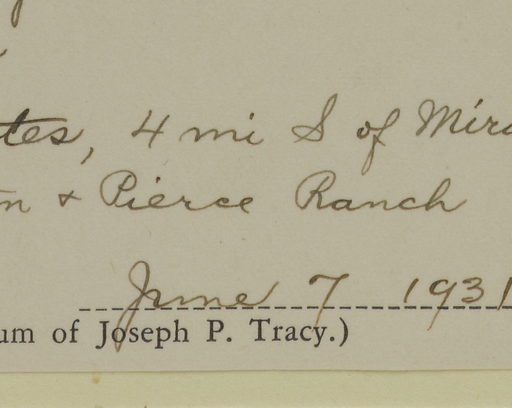 tes, 4 mi S of Mira
n & Pierce Ranch
June 7 1931
um of Joseph P. Tracy.)